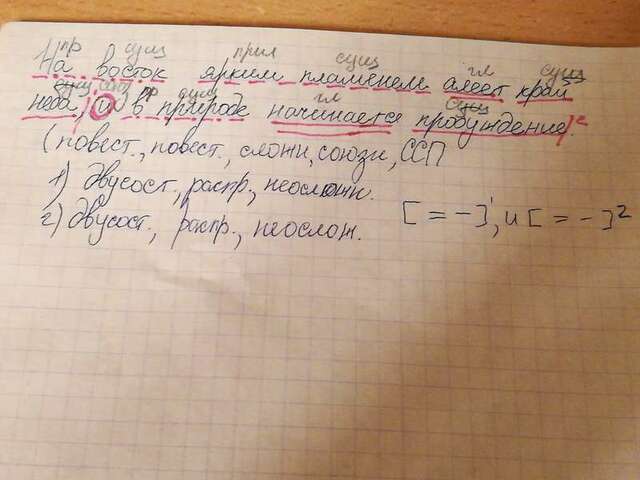 пр сущ прил сущ гл сущ
На восток ярким пламенем алеет край
сущ союз пр сущ гл сущ
неба, и в природе начинается пробуждение.)²
(повест., повест., сложн, союзн, ССП
1) двусост., распр., неосложн.
2) двусост., распр., неослож.
[ = - ]¹, и [ = - ]²